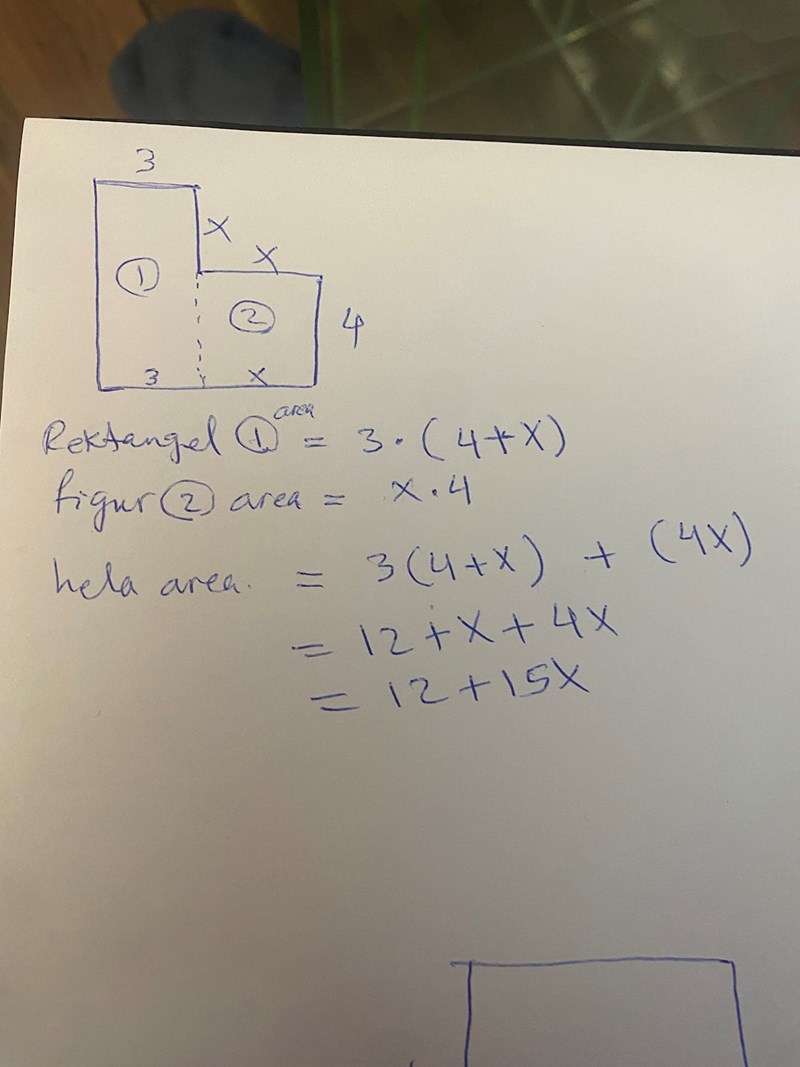 3
x
x
①
②
4
3
x
Rektangel ① area = 3 · (4+x)
figur ② area = x · 4
hela area. = 3(4+x) + (4x)
= 12 + x + 4x
= 12 + 15x